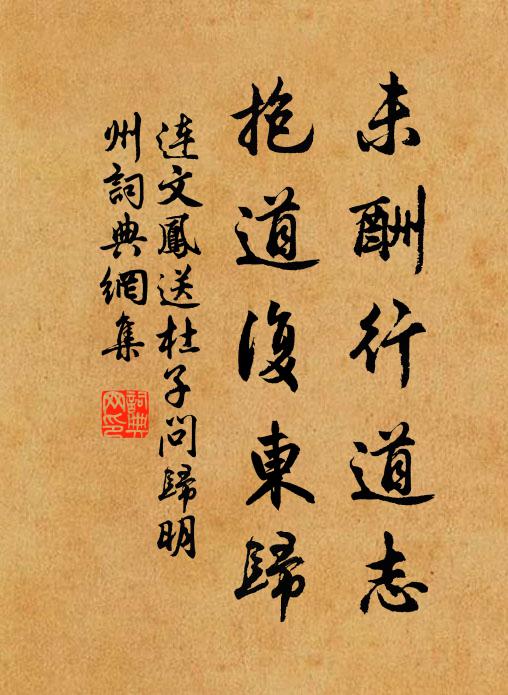 未酬行道志
抱道復東歸
連文鳳送杜子問歸明
州詞典網集
詞典
网印